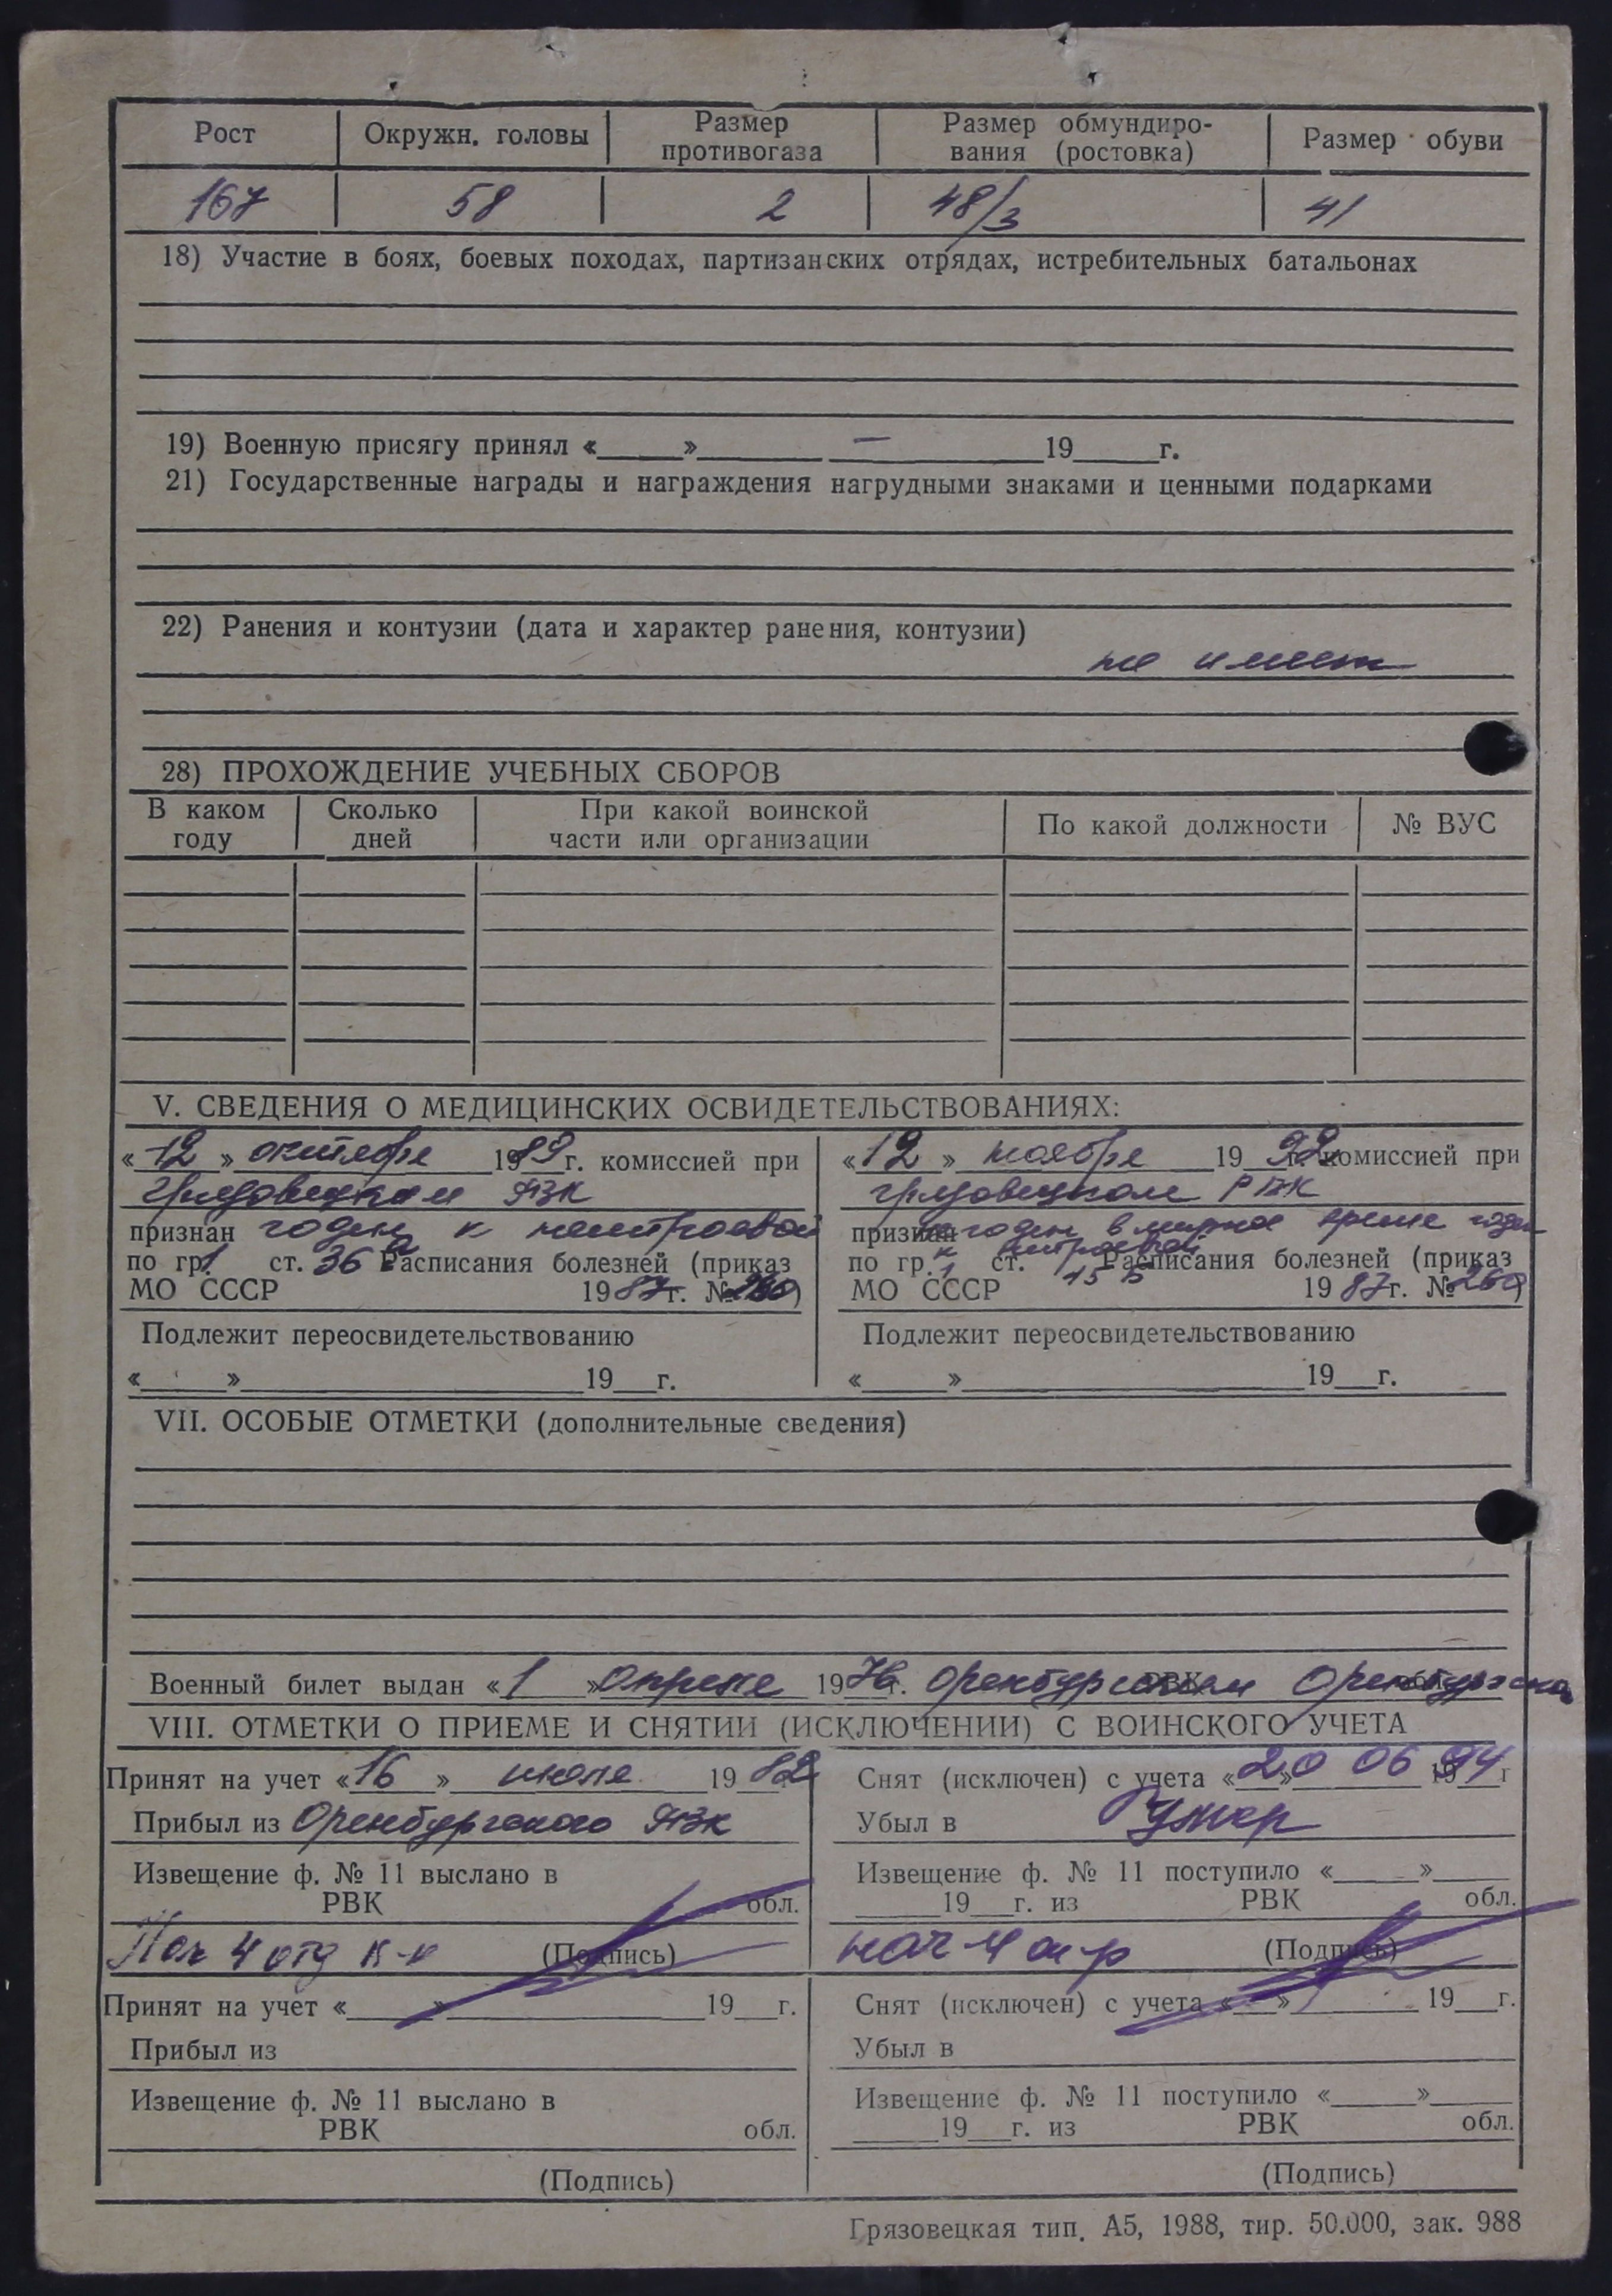 Рост Окружн. головы Размер противогаза Размер обмундиро- вания (ростовка) Размер обуви
167 58 2 48/3 41
18) Участие в боях, боевых походах, партизанских отрядах, истребительных батальонах
19) Военную присягу принял «____»____ — ____19____г.
21) Государственные награды и награждения нагрудными знаками и ценными подарками
22) Ранения и контузии (дата и характер ранения, контузии)
не имеет
28) ПРОХОЖДЕНИЕ УЧЕБНЫХ СБОРОВ
В каком году Сколько дней При какой воинской части или организации По какой должности № ВУС
V. СВЕДЕНИЯ О МЕДИЦИНСКИХ ОСВИДЕТЕЛЬСТВОВАНИЯХ:
«12» октября 1989г. комиссией при
Грязовецком РВК
признан годен к нестроевой
по гр. 1 ст. 36 а Расписания болезней (приказ
МО СССР 1987г. № 260)
Подлежит переосвидетельствованию
«____»____19__г.
«12» ноября 1992г. комиссией при
Грязовецком РВК
признан не годен в мирное время годен
к нестроевой
по гр. 1 ст. 45 б Расписания болезней (приказ
МО СССР 1987г. № 260)
Подлежит переосвидетельствованию
«____»____19__г.
VII. ОСОБЫЕ ОТМЕТКИ (дополнительные сведения)
Военный билет выдан «1» апреля 1976г. Оренбургским РВК Оренбургской обл.
VIII. ОТМЕТКИ О ПРИЕМЕ И СНЯТИИ (ИСКЛЮЧЕНИИ) С ВОИНСКОГО УЧЕТА
Принят на учет «16» июля 1982
Прибыл из Оренбургского РВК
Извещение ф. № 11 выслано в
РВК обл.
Нач 4 отд к-н (Подпись)
Снят (исключен) с учета «20» 06 1994г
Убыл в Умер
Извещение ф. № 11 поступило «____»____
____19__г. из РВК обл.
нач 4 (Подпись)
Принят на учет «____»____19__г.
Прибыл из
Извещение ф. № 11 выслано в
РВК обл.
(Подпись)
Снят (исключен) с учета «____»____19__г.
Убыл в
Извещение ф. № 11 поступило «____»____
____19__г. из РВК обл.
(Подпись)
Грязовецкая тип. А5, 1988, тир. 50.000, зак. 988